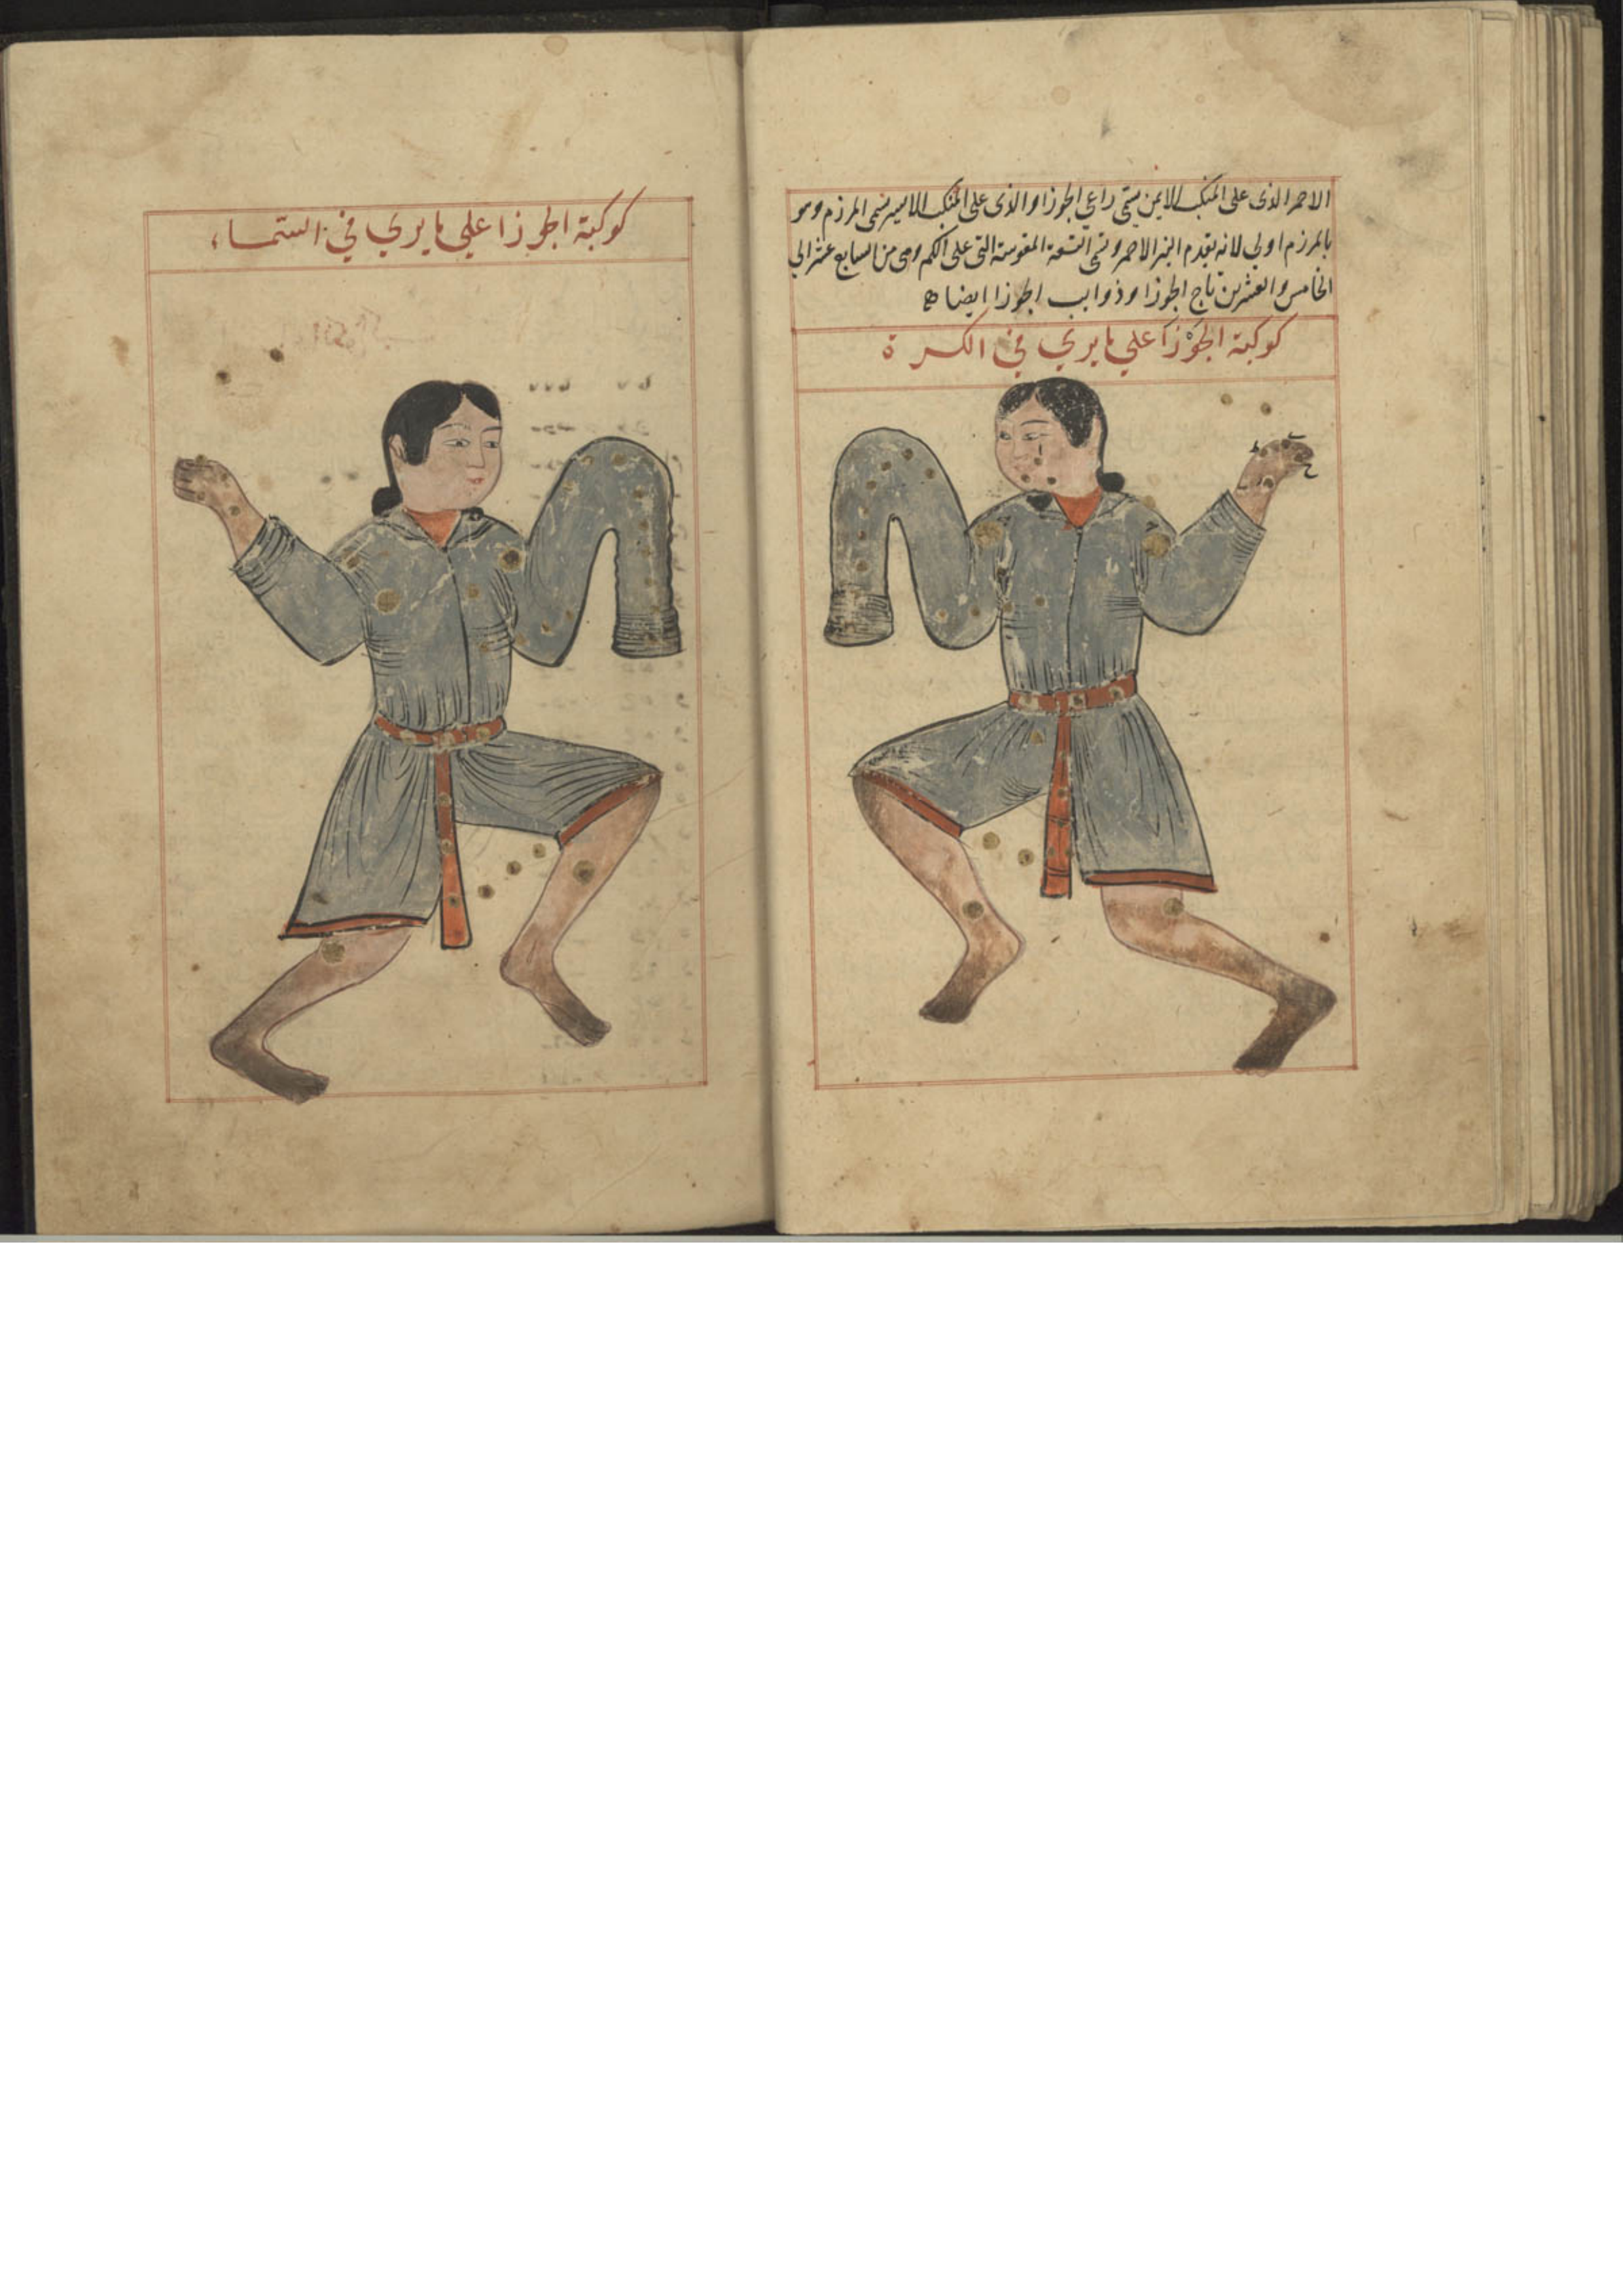 الاحمر الذى على المنكب الايمن يسمى راعي الجوزا والذى على المنكب الايسر يسمى المرزم وهو
بالمرزم اولي لانه يقدم النير الاحمر وتسمى التسعة المقوسة التى على الكم وهى من السابع عشر الي
الخامس والعشرين تاج الجوزا وذوايب الجوزا ايضا ه
كوكبة الجوزا علي ما يري في الكرة
كوكبة الجوزا علي ما يري في السماء